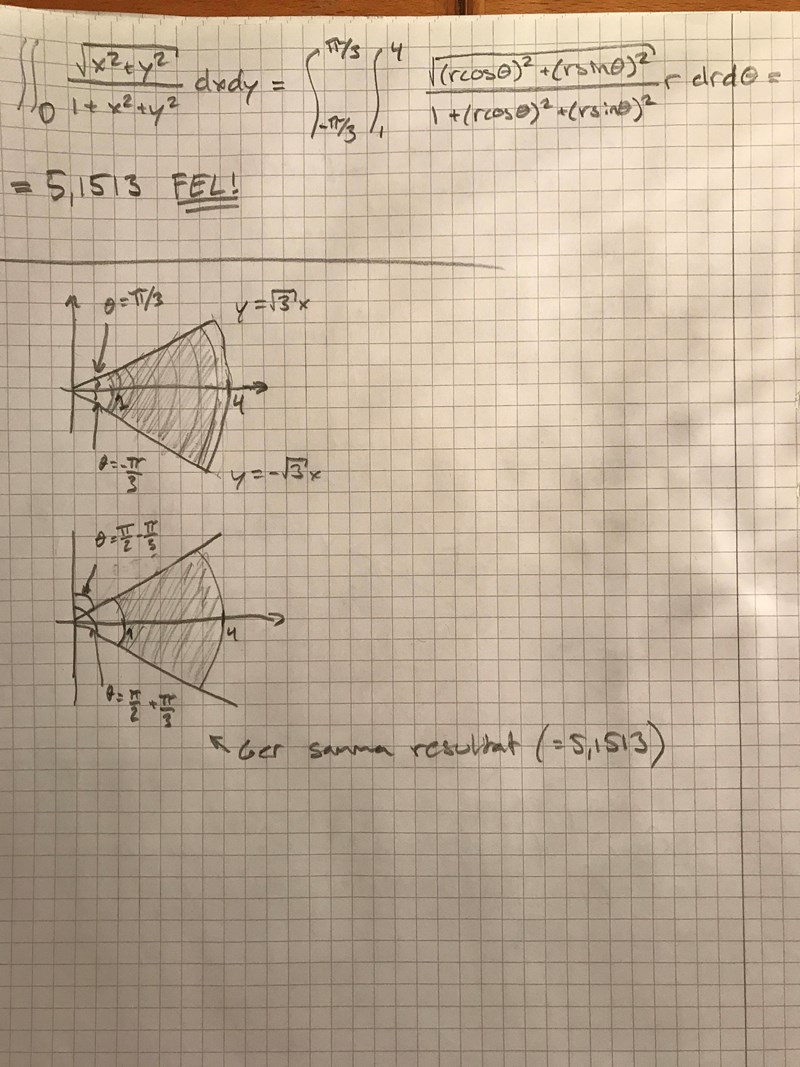 ∬_D √(x²+y²) / (1+x²+y²) dxdy = ∫_{-π/3}^{π/3} ∫_1^4 √((rcosθ)²+(rsinθ)²) / (1+(rcosθ)²+(rsinθ)²) r drdθ =
= 5,1513 FEL!
θ=π/3 y=√3x
1 4
θ=-π/3 y=-√3x
θ=π/2-π/3
1 4
θ=π/2+π/3
↖ Ger samma resultat (=5,1513)